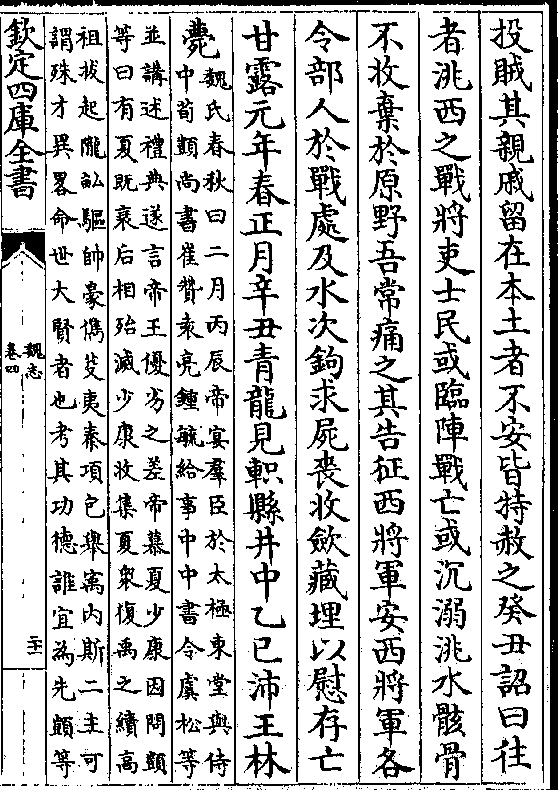 投賊其親戚留在本土者不安皆特赦之癸丑詔曰往
者洮西之戰將吏士民或臨陣戰亡或沉溺洮水骸骨
不收棄於原野吾常痛之其告征西將軍安西將軍各
令部人於戰處及水次鉤求屍喪收歛藏埋以慰存亡
甘露元年春正月辛丑青龍見軹縣井中乙巳沛王林
薨
魏氏春秋曰二月丙辰帝宴羣臣於太極東堂與侍
中荀顗尚書崔贊袁亮鍾毓給事中中書令虞松等
並講述禮典遂言帝王優劣之差帝慕夏少康因問顗
等曰有夏既衰后相殆滅少康收集夏衆復禹之績高
祖拔起隴畝驅帥豪儁芟夷秦項包舉寓内斯二主可
謂殊才異畧命世大賢者也考其功德誰宜為先顗等
欽定四庫全書
魏志
卷四
二十